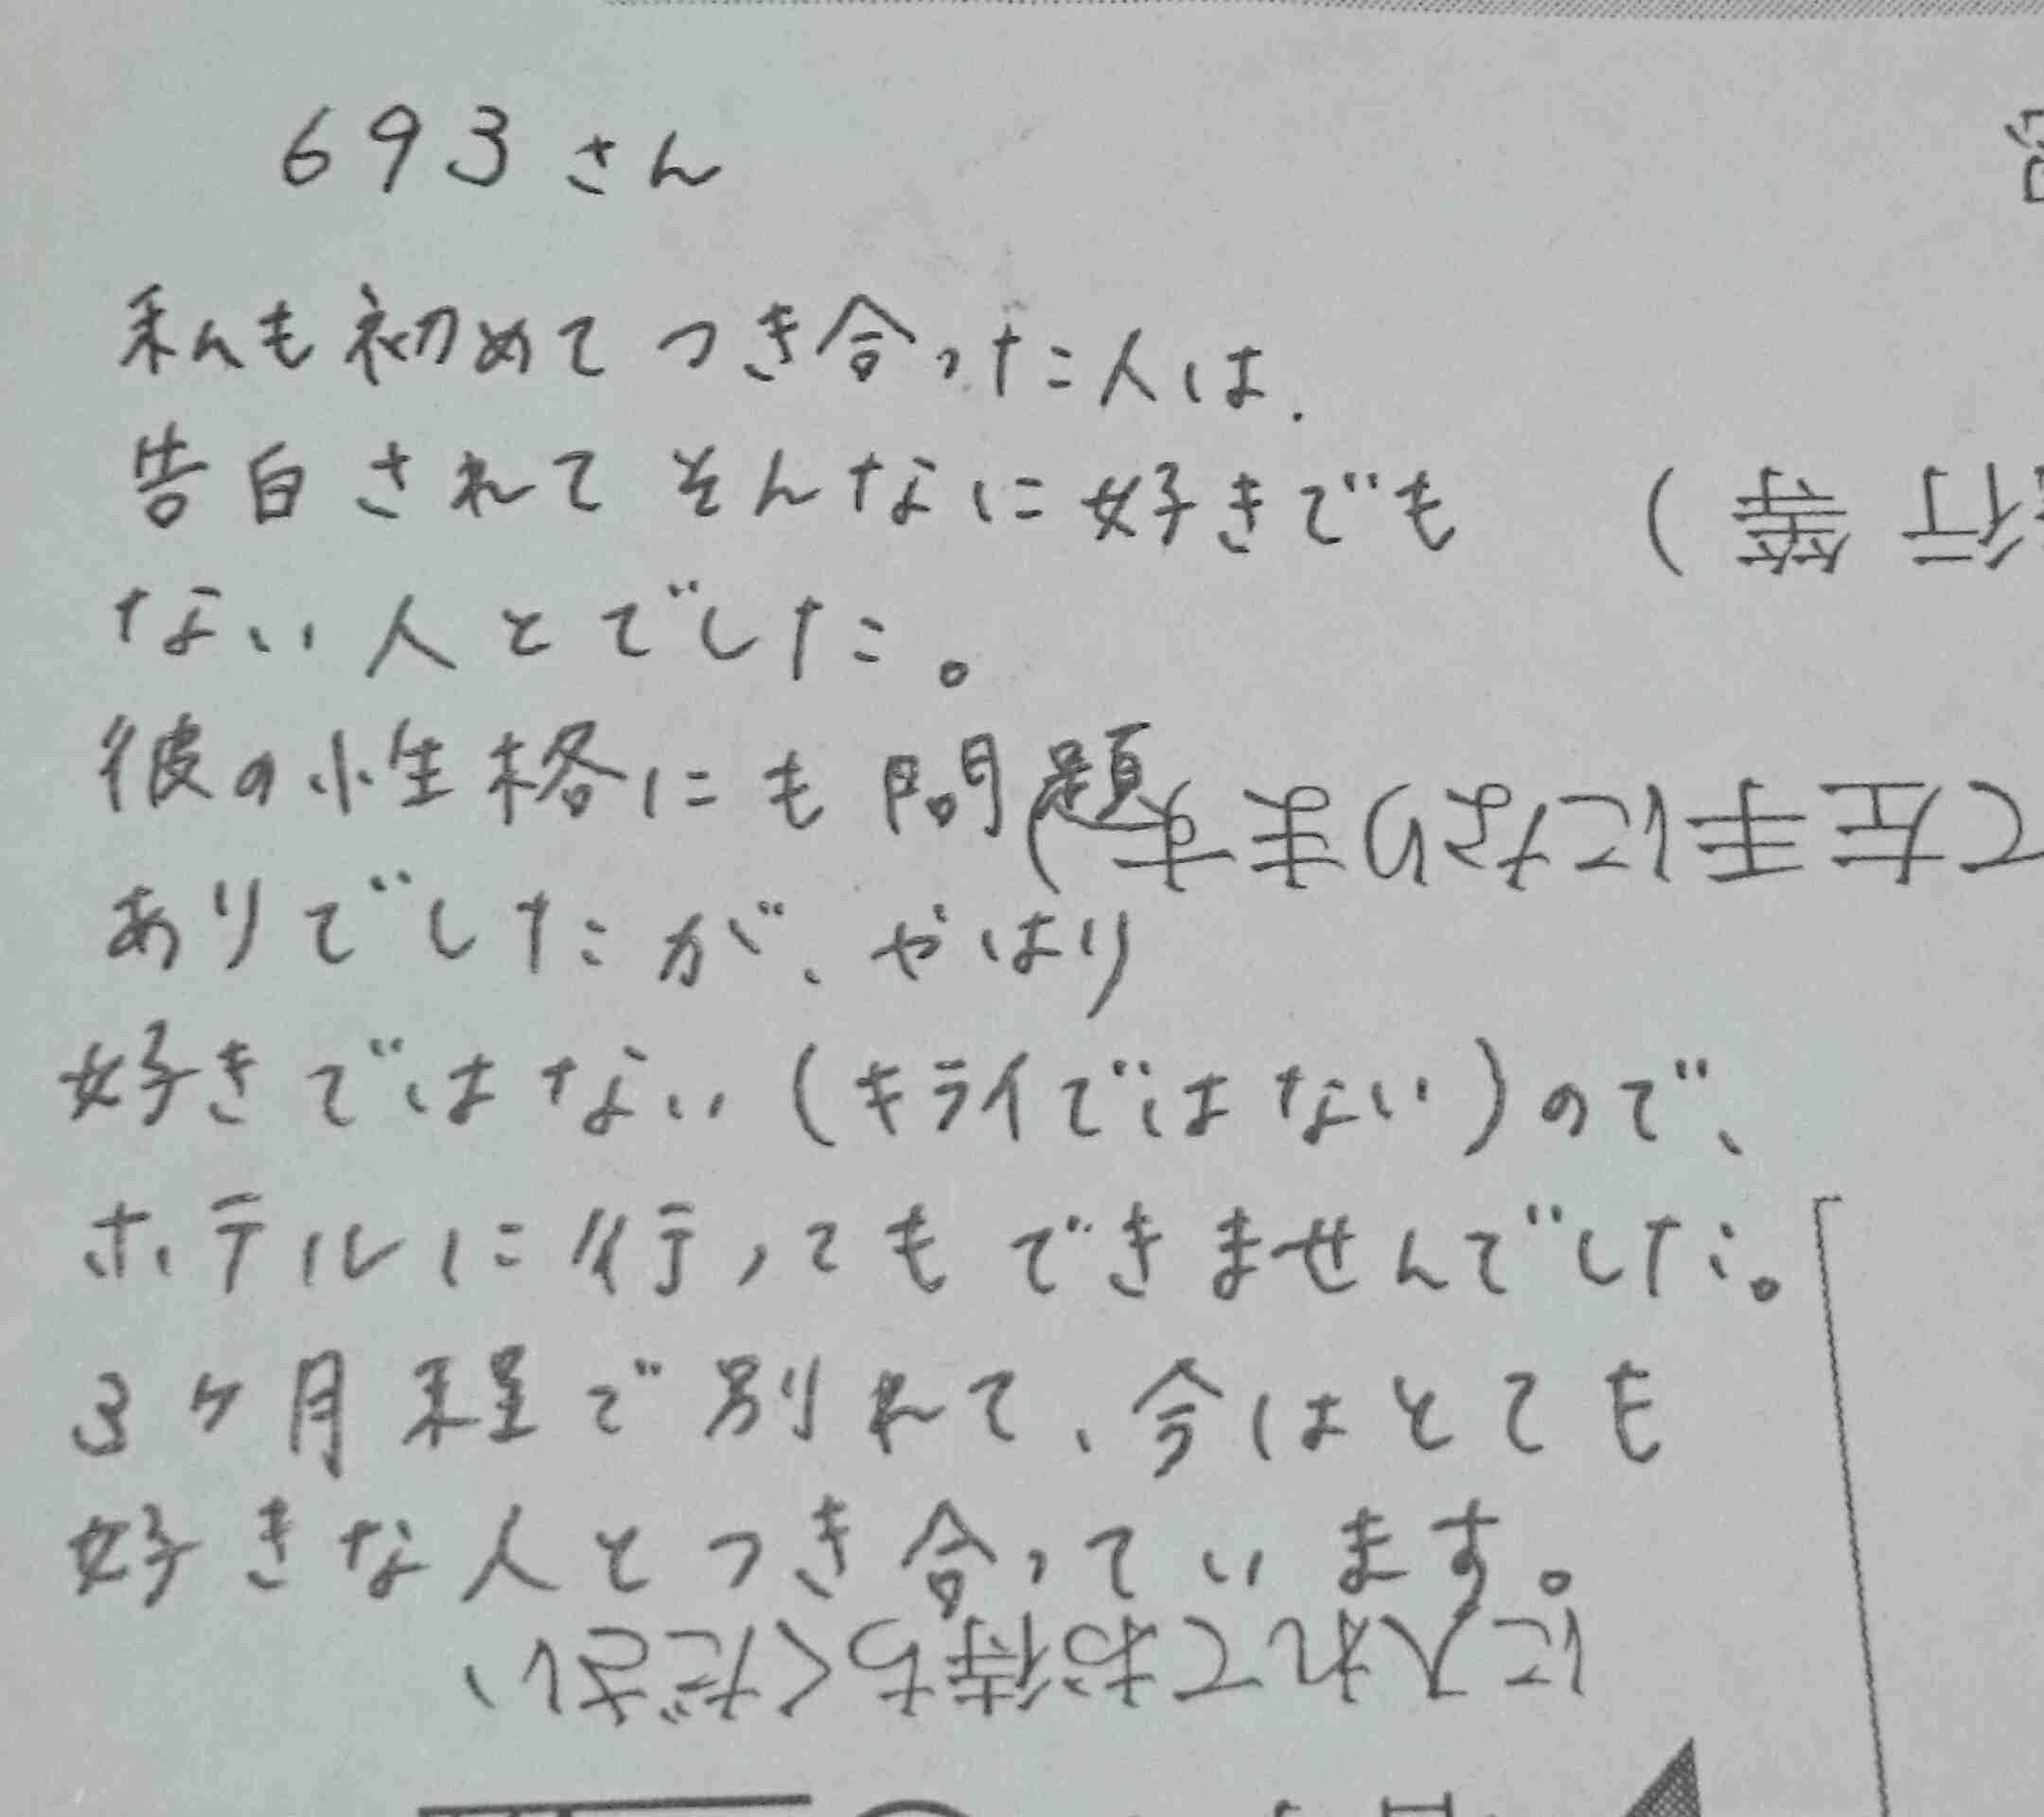 693さん
私も初めてつき合った人は、
告白されてそんなに好きでも
ない人とでした。
彼の性格にも問題
ありでしたが、やはり
好きではない(キライではない)ので、
ホテルに行ってもできませんでした。
3ヶ月程で別れて、今はとても
好きな人とつき合っています。
行 等)
て左手になります)
に入れてお待ちください